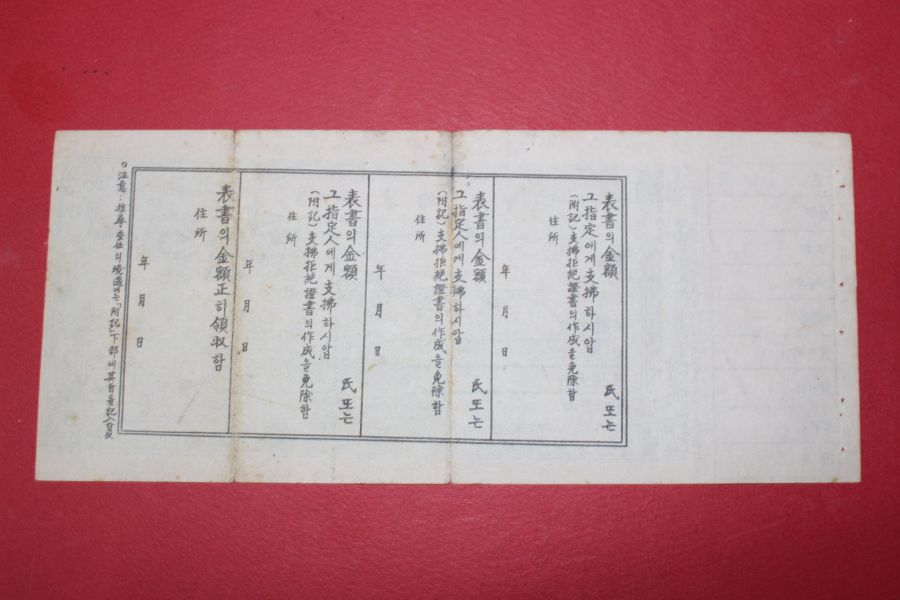 表書의金額 氏또는
그指定에게支拂하시압
(附記)支拂拒絶證書의作成을免除함
住所
年 月 日
表書의金額 氏또는
그指定人에게支拂하시압
(附記)支拂拒絶證書의作成을免除함
住所
年 月 日
表書의金額 氏또는
그指定人에게支拂하시압
(附記)支拂拒絶證書의作成을免除함
住所
年 月 日
表書의金額正히領収함
住所
年 月 日
注意:推尋委任의境遇에는「附記」下部에其旨를記入할